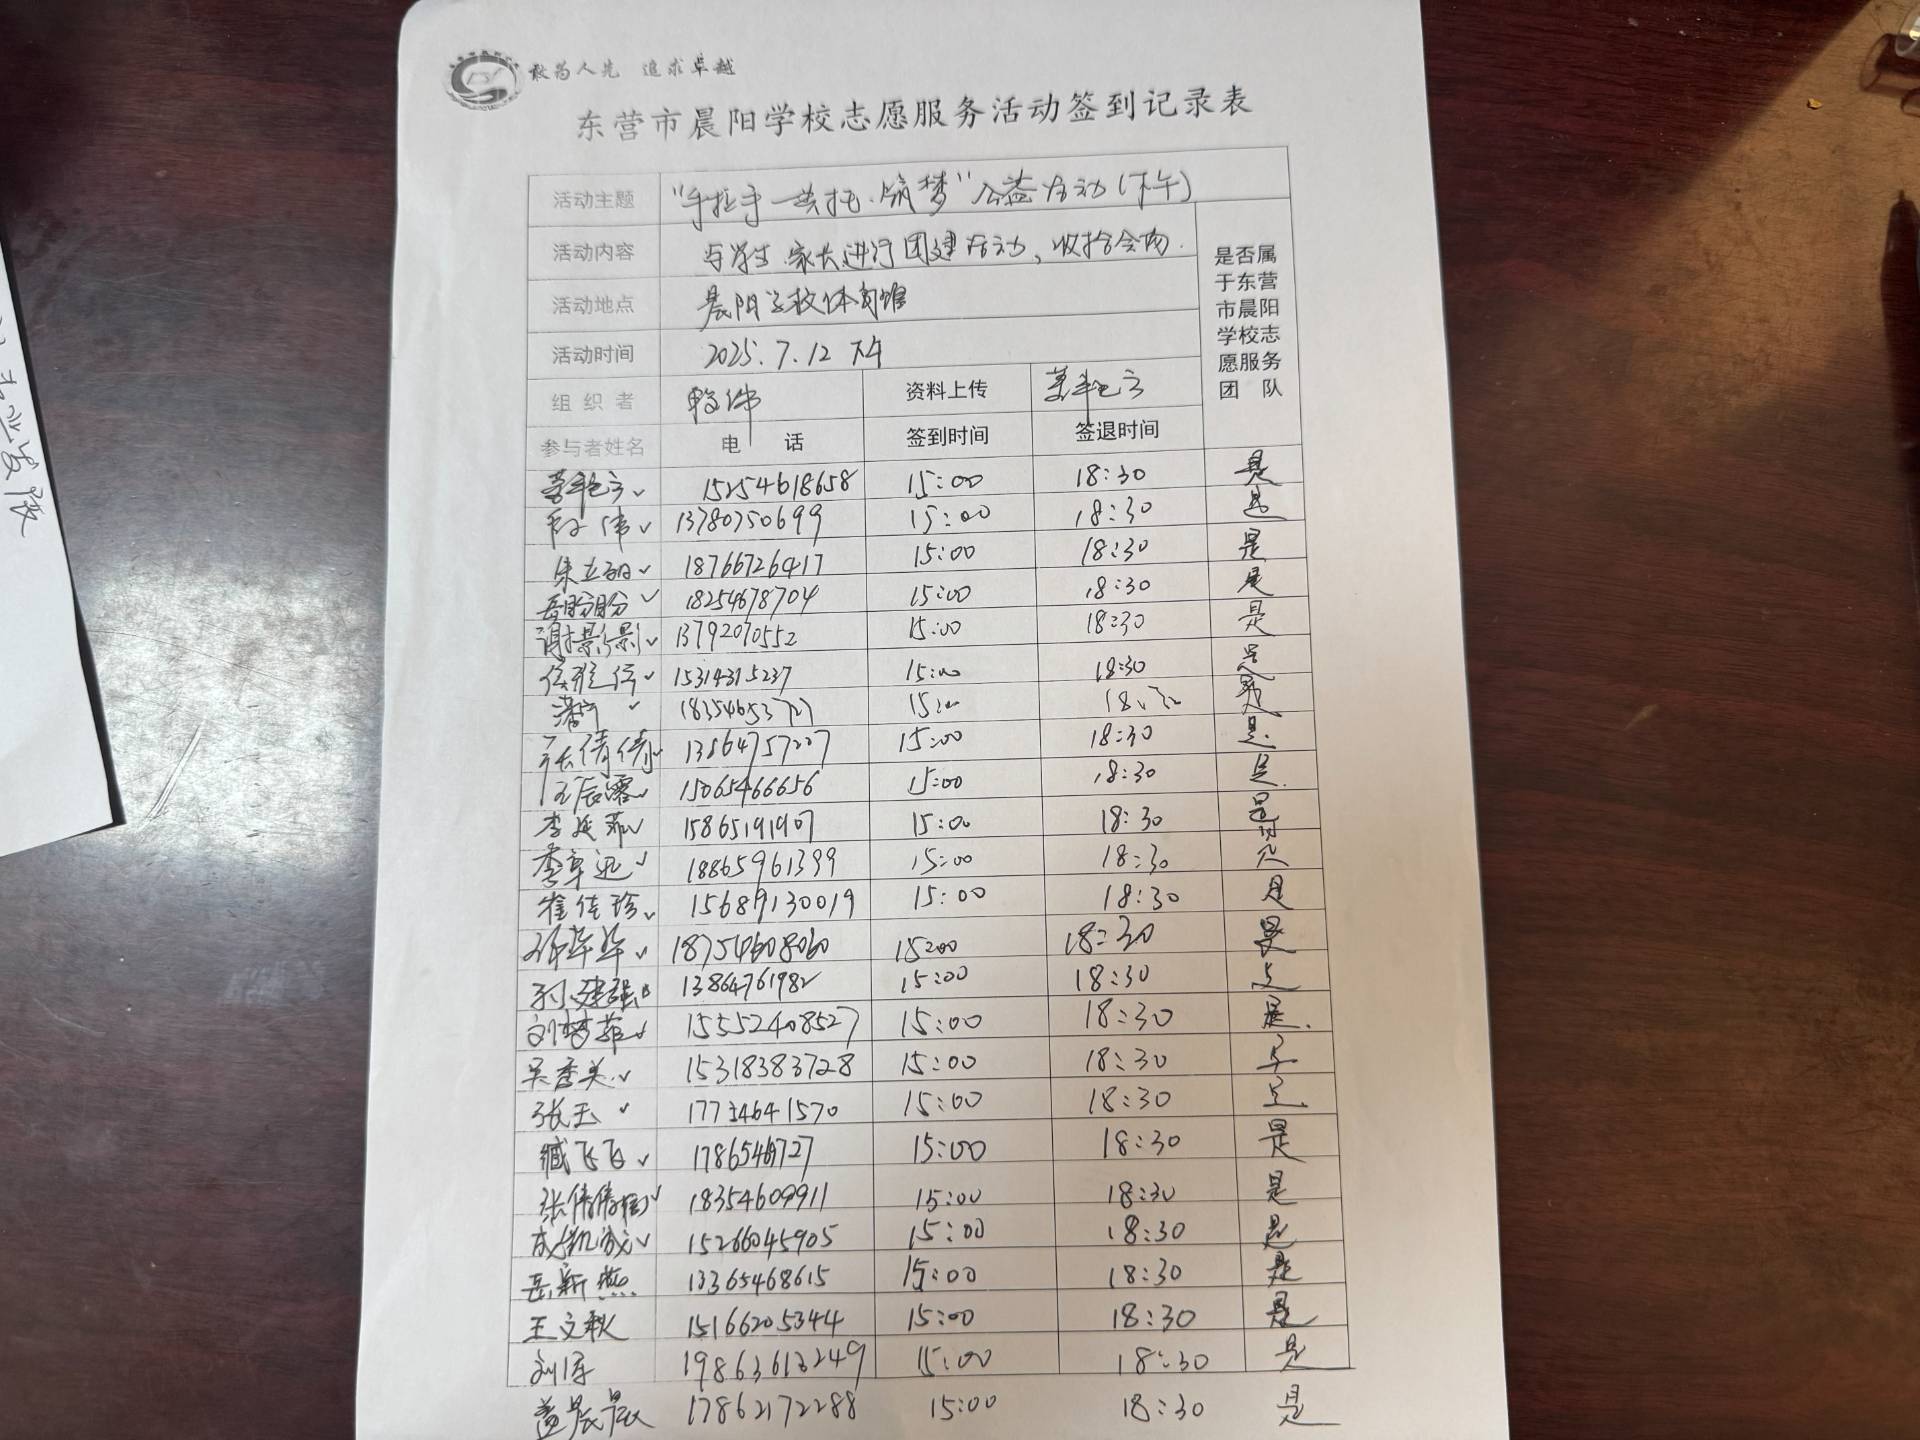 敢为人先 追求卓越
东营市晨阳学校志愿服务活动签到记录表
活动主题 "手拉手 一共托 筑梦"公益活动(下午)
活动内容 与学生、家长进行团建活动、收拾会场.
活动地点 晨阳学校体育馆
活动时间 2025.7.12 下午
是否属于东营市晨阳学校志愿服务团 队
组 织 者 资料上传
参与者姓名 电 话 签到时间 签退时间
15254618658 15:00 18:30 是
伟 13780750699 15:00 18:30 是
18766726417 15:00 18:30 是
岳盼盼 18254678704 15:00 18:30 是
谢影影 13792070552 15:00 18:30 是
15314315237 15:00 18:30 是
潘宁 18354653727 15:00 18:30 是
张倩倩 13864757227 15:00 18:30 是
王辰露 15065466656 15:00 18:30 是
李延菊 15865191907 15:00 18:30 是
18865961399 15:00 18:30 是
崔佳珍 15689130019 15:00 18:30 是
18754608060 15:00 18:30 是
13864761982 15:00 18:30 是
刘梦菲 15552408527 15:00 18:30 是
吴香美 15318383728 15:00 18:30 是
张玉 17754641570 15:00 18:30 是
臧飞飞 15:00 18:30 是
张倩倩 18354609911 15:00 18:30 是
15266045905 15:00 18:30 是
岳新燕 13365468615 15:00 18:30 是
王文秋 15166205344 15:00 18:30 是
刘译 19863613249 15:00 18:30 是
盖晨晨 17862172288 15:00 18:30 是